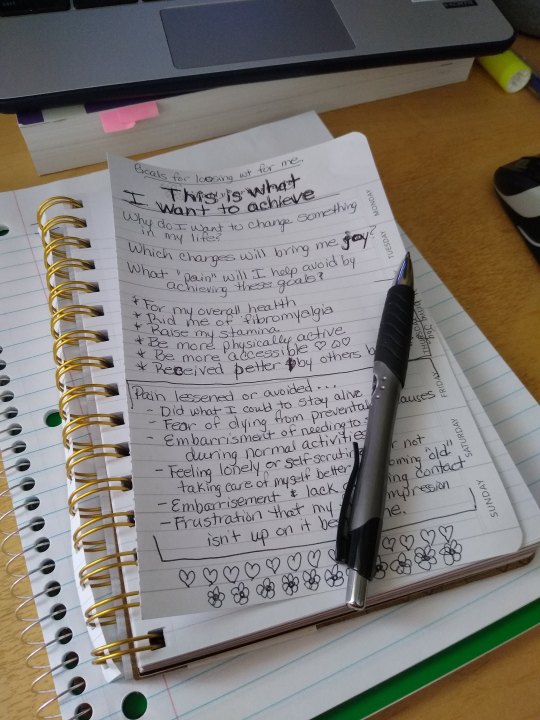 Goals for loosing wt for me.
This is what
I want to achieve
Why do I want to change something
in my life?
Which changes will bring me joy?
What "pain" will I help avoid by
achieving these goals?
* For my overall health
* Rid me of fibromyalgia
* Raise my stamina
* Be more physically active
* Be more accessible
* Received better by others
Pain lessened or avoided...
- Did what I could to stay alive.
- Fear of dying from causes
- Embarrisment of needing to
during normal activities
- Feeling lonely or self-scrutiny not
taking care of myself better "old"
- Embarrisement & lack contact
- Frustration that my me.
isn't up on it
MONDAY
TUESDAY
FRIDAY
SATURDAY
SUNDAY